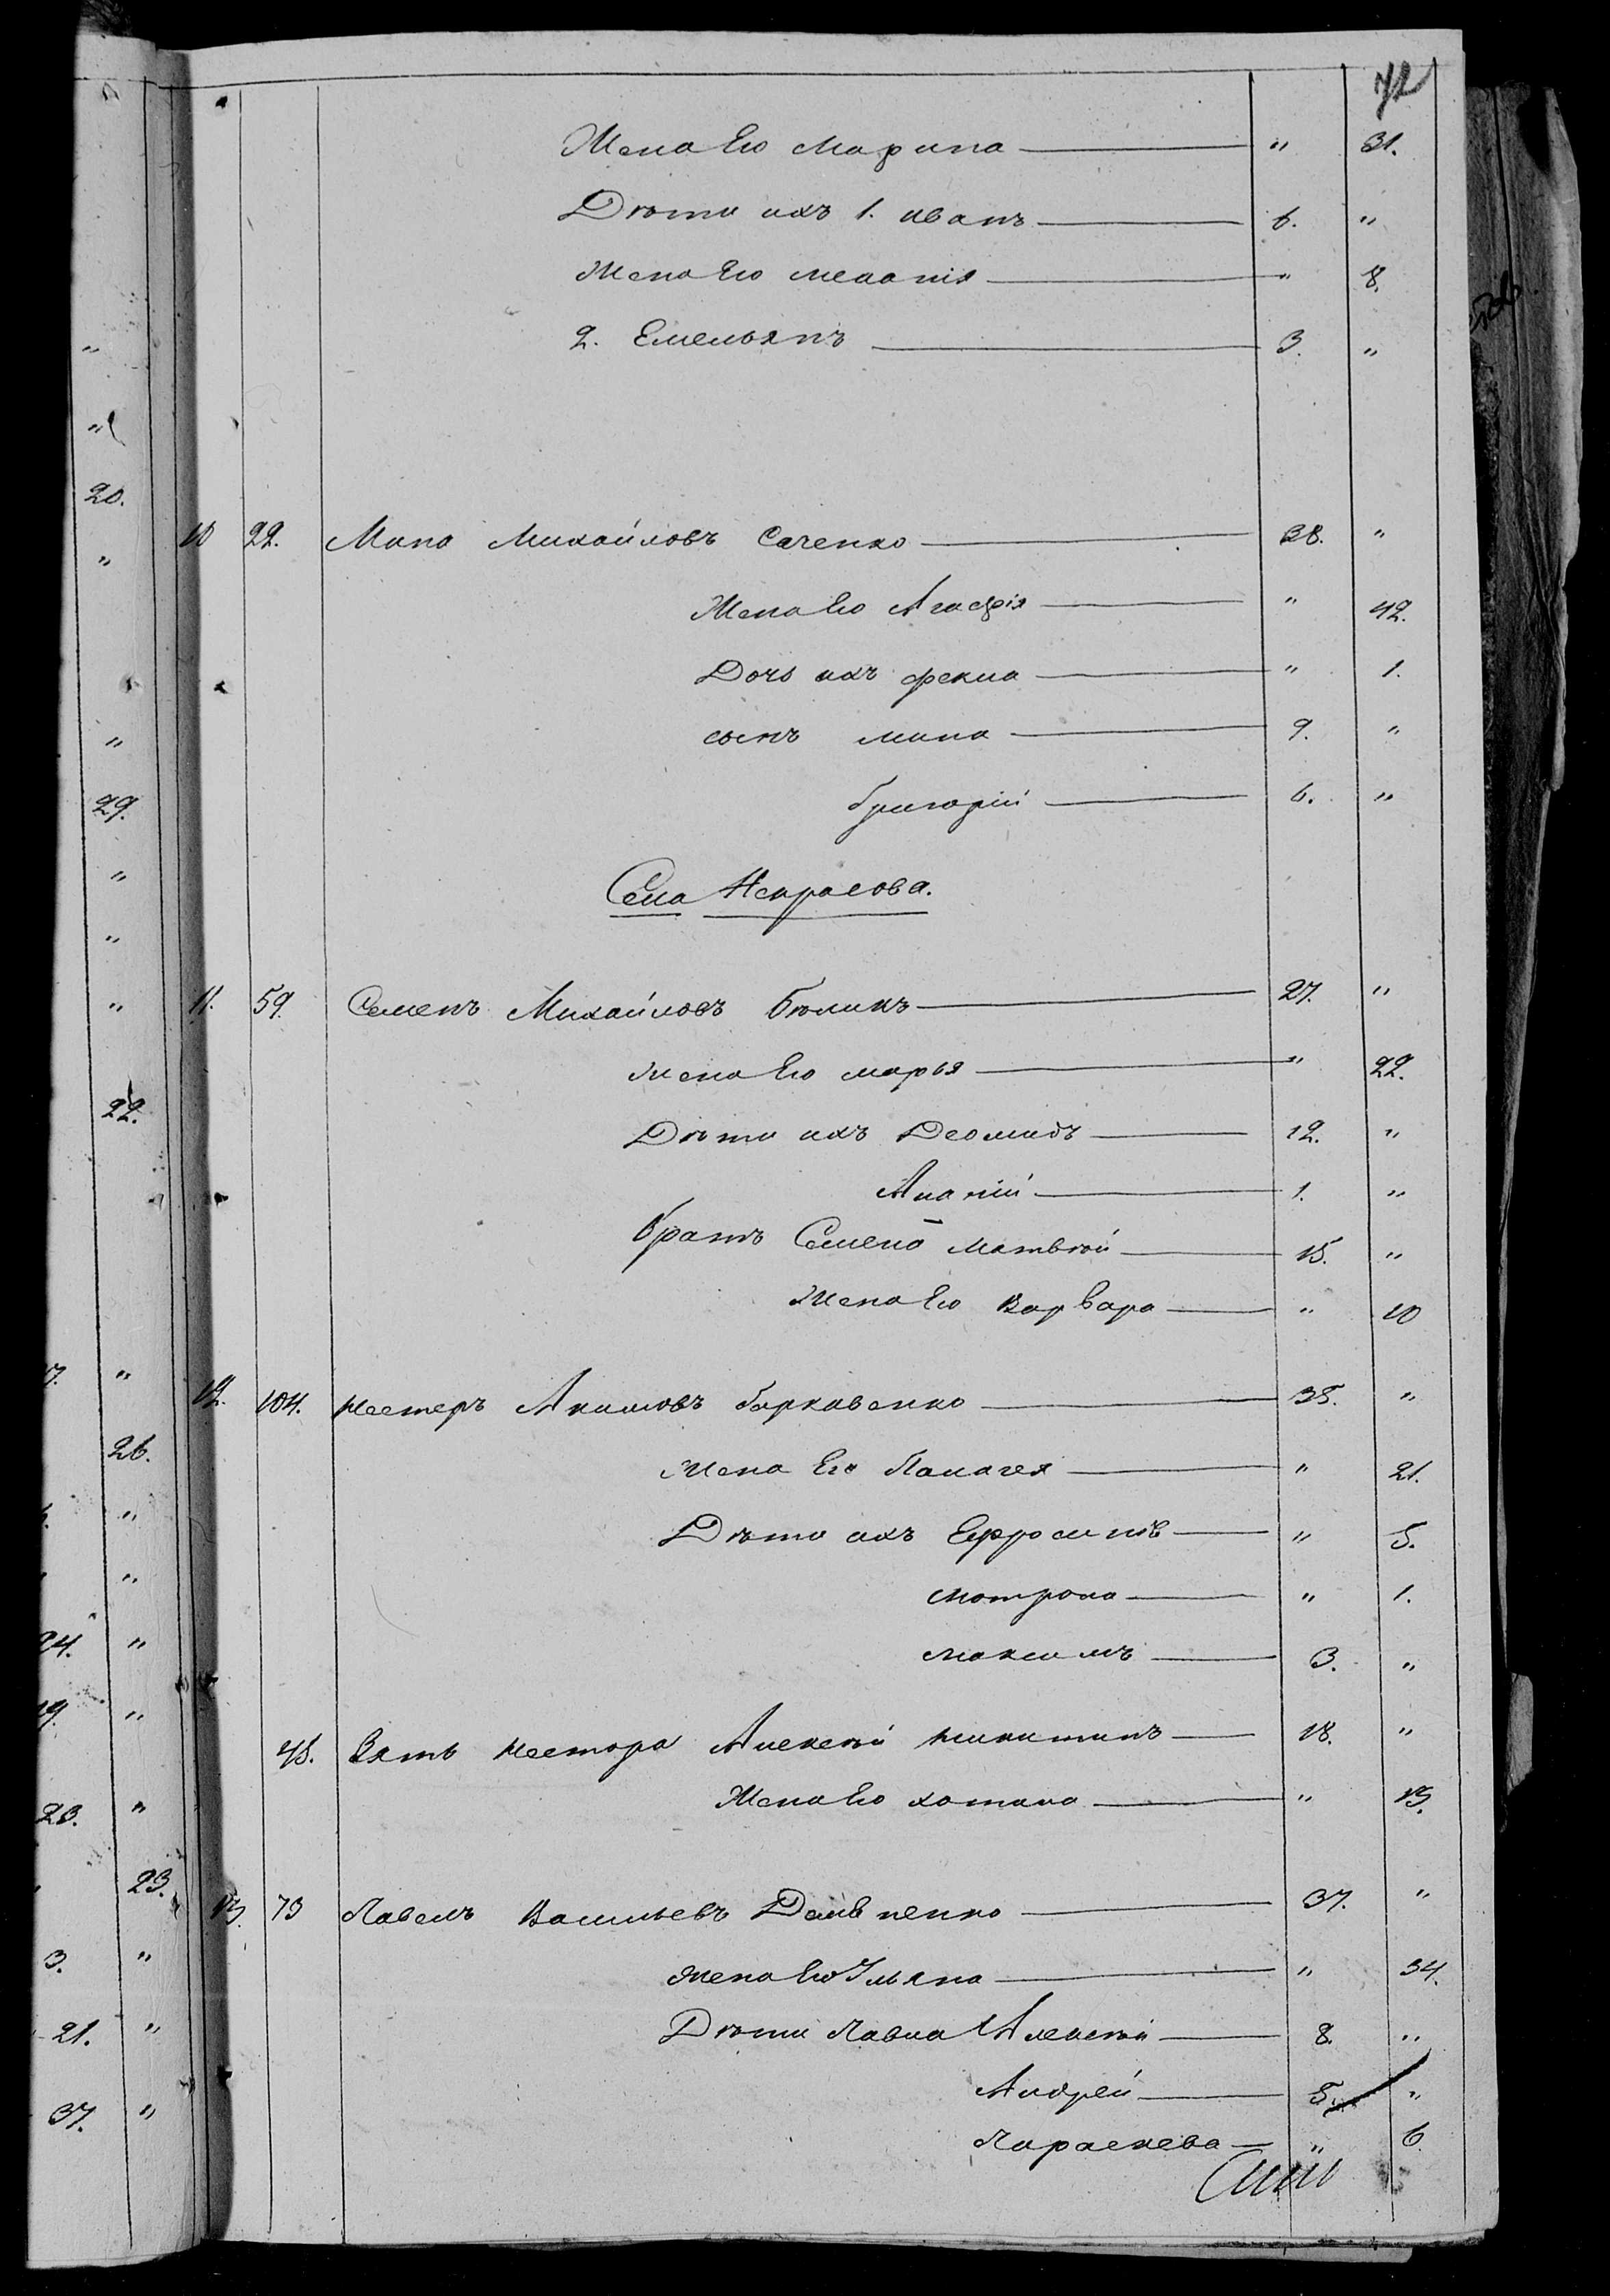 72
Жена Его Марина — " 31.
Дѣти ихъ 1. иванъ — 6. "
Жена Его меланія — " 8.
2. Емельянъ — 3. "
10 22. Мина Михайловъ Саченко — 38. "
Жена Его Агафія — " 42.
Дочь ихъ фекла — " 1.
сынъ мина — 9. "
Григорій — 6. "
Села Некрасова.
11. 59. Семенъ Михайловъ Бѣликъ — 27. "
жена Его марья — " 22.
Дѣти ихъ Деомидъ — 12. "
Ананій — 1. "
братъ Семена матвѣй — 15. "
Жена Его Варвара — " 10
12. 104. Нестеръ Акимовъ — 35. "
Жена Его Палагея — " 21.
Дѣти ихъ Ефросинія — " 5.
мотрона — " 1.
максимъ — 3. "
45. Зять Нестора Алексѣй никитинъ — 18. "
Жена Его — " 13.
13. 73 Павелъ Васильевъ — 37. "
жена Его Ульяна — " 34.
Дѣти Павла Алексѣй — 8. "
Андрей — 5. "
Параскева — " 6.
20.
29.
22.
7.
26.
24.
19.
23.
23.
3.
21.
37.